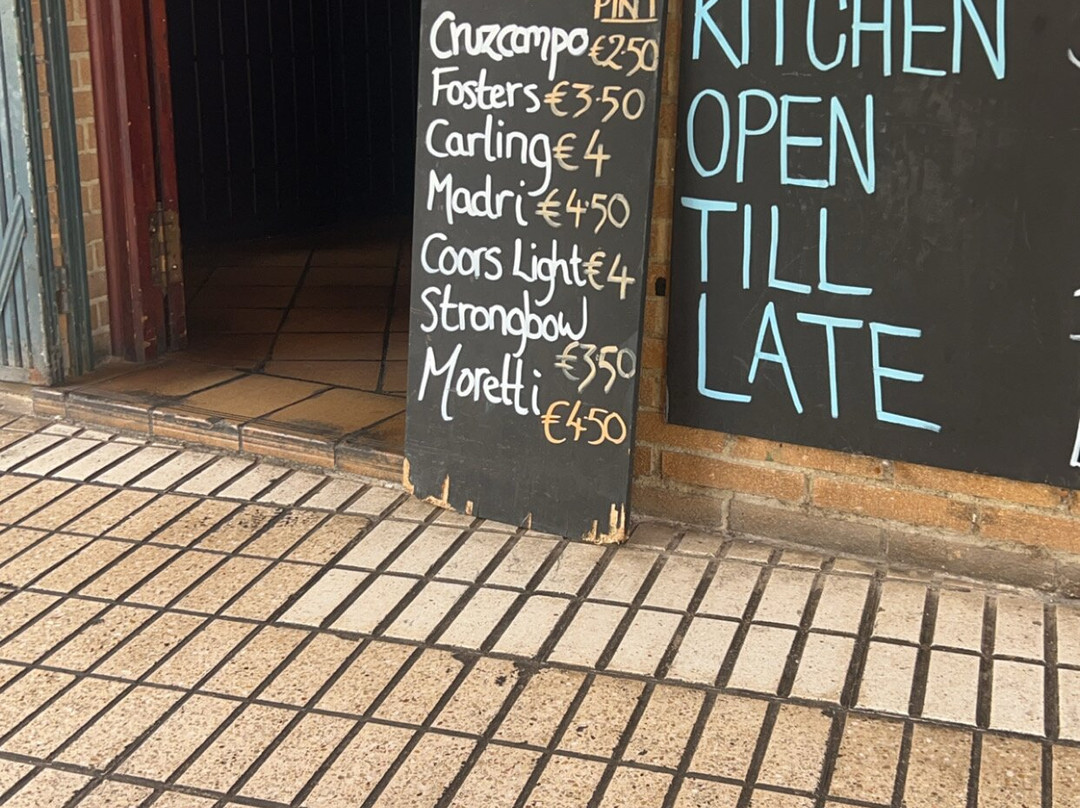 PINT
Cruzcampo €2.50
Fosters €3.50
Carling €4
Madri €4.50
Coors Light €4
Strongbow
€3.50
Moretti
€4.50
KITCHEN
OPEN
TILL
LATE